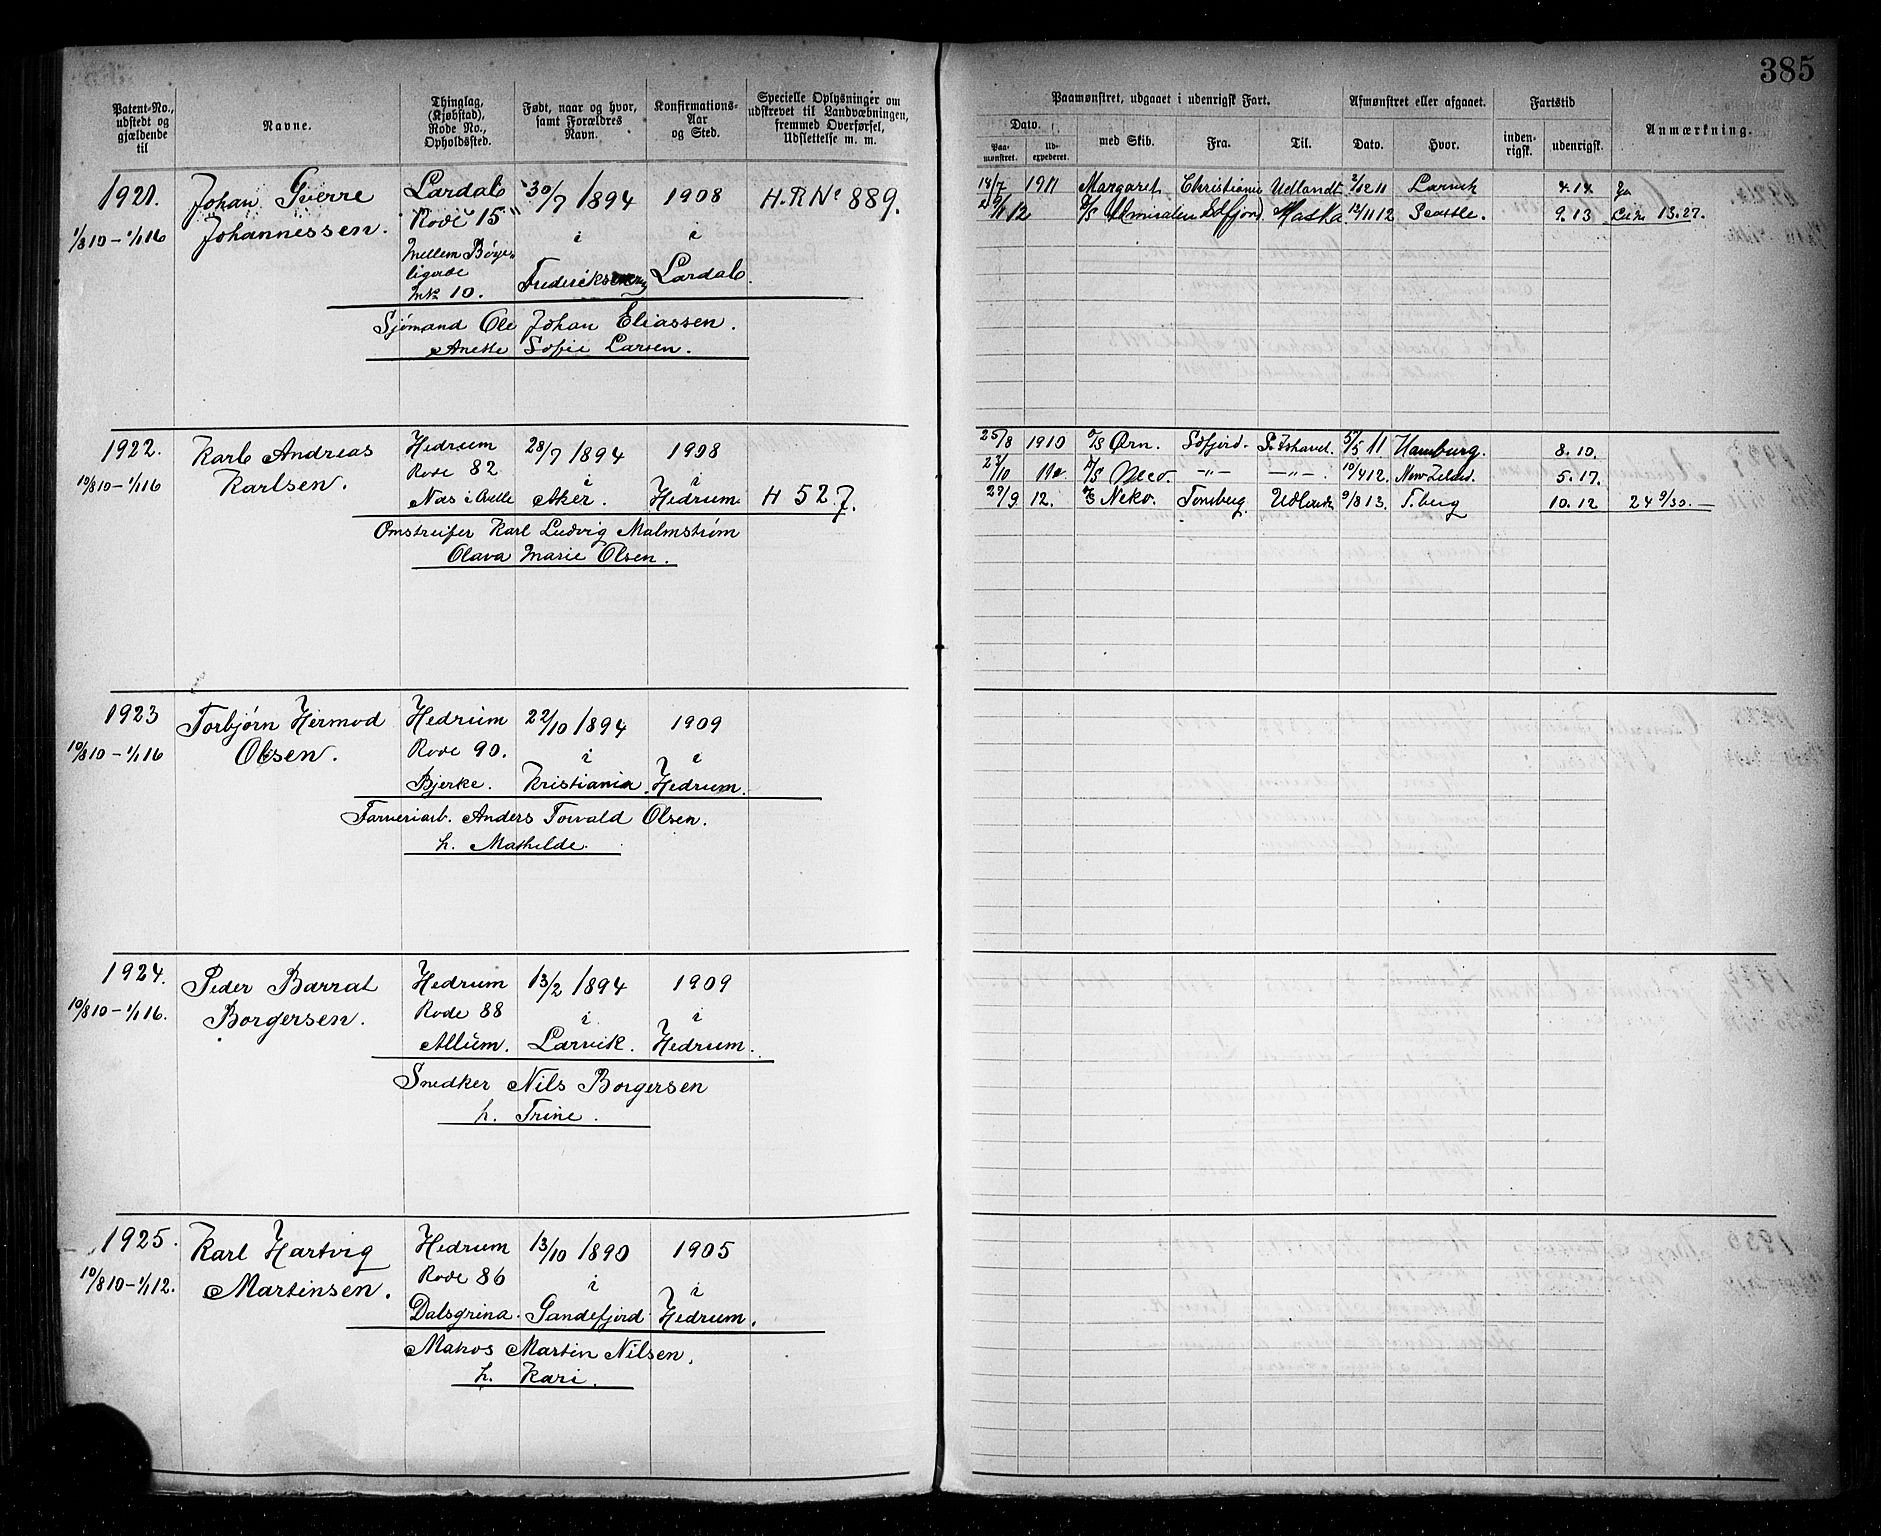 385
Patent-No., udstedt og gjældende til
Navne.
Thinglag, (Kjøbstad), Rode No., Opholdssted.
Født, naar og hvor, samt Forældres Navn.
Konfirmations-Aar og Sted.
Specielle Oplysninger om udskrevet til Landvæbningen, fremmed Overførsel, Udslettelse m. m.
Paamønstret, udgaaet i udenrigsk Fart.
Dato.
Paa-mønstret.
Ud-expederet.
med Skib.
Fra.
Til.
Afmønstret eller afgaaet.
Dato.
Hvor.
Fartstid
inden-rigsk.
udenrigsk.
Anmærkning.
1921. Johan Sverre Lardal 30/7 1894 1908 H.R No 889.
1/8 10 – 1/1 16 Johannessen. Rode 15 i i
Mellem Bøge-
ligade
mtr 10. Frederiksværn Lardal.
Sjømand Ole Johan Eliassen.
Anette Sofie Larsen.
18/7 1911 Margaret Christiania Udlandt 2/12 11 Larvik 4.14
12 Sdfjord Alaska 12/11 12 Seattle. 9.13 13.27.
1922. Karl Andreas Hedrum 28/7 1894 1908
10/8 10 – 1/1 16 Karlsen. Rode 82 i i
Nas i Kvelle Aker. Hedrum H 527.
Omstreifer Karl Ludvig Malmstrøm
Olava Marie Olsen.
25/8 1910 Ørn. Sdfjord. S. Shetland. 5/5 11 Hamburg. 8.10.
/10 A/S Neco. –"– –"– 10/4 12. New Zeland. 5.17.
27/9 12. Neko. Tønsberg Udlandt 9/8 13. T.berg 10.12 24 9/30.
1923 Torbjørn Hermod Hedrum 22/10 1894 1909
10/8 10 – 1/1 16 Olsen. Rode 90. i i
Bjerke. Kristiania. Hedrum.
Farveriarb. Anders Torvald Olsen.
h. Mathilde.
1924. Peder Barrat Hedrum 13/2 1894 1909
10/8 10 – 1/1 16. Borgersen. Rode 88 i i
Allum. Larvik. Hedrum.
Snedker Nils Borgersen
h. Trine.
1925. Karl Hartvig Hedrum 13/10 1890 1905
10/8 10 – 1/1 12. Martinsen. Rode 86 i i
Dalsgrina. Sandefjord Hedrum.
Matros Martin Nilsen.
h. Kari.